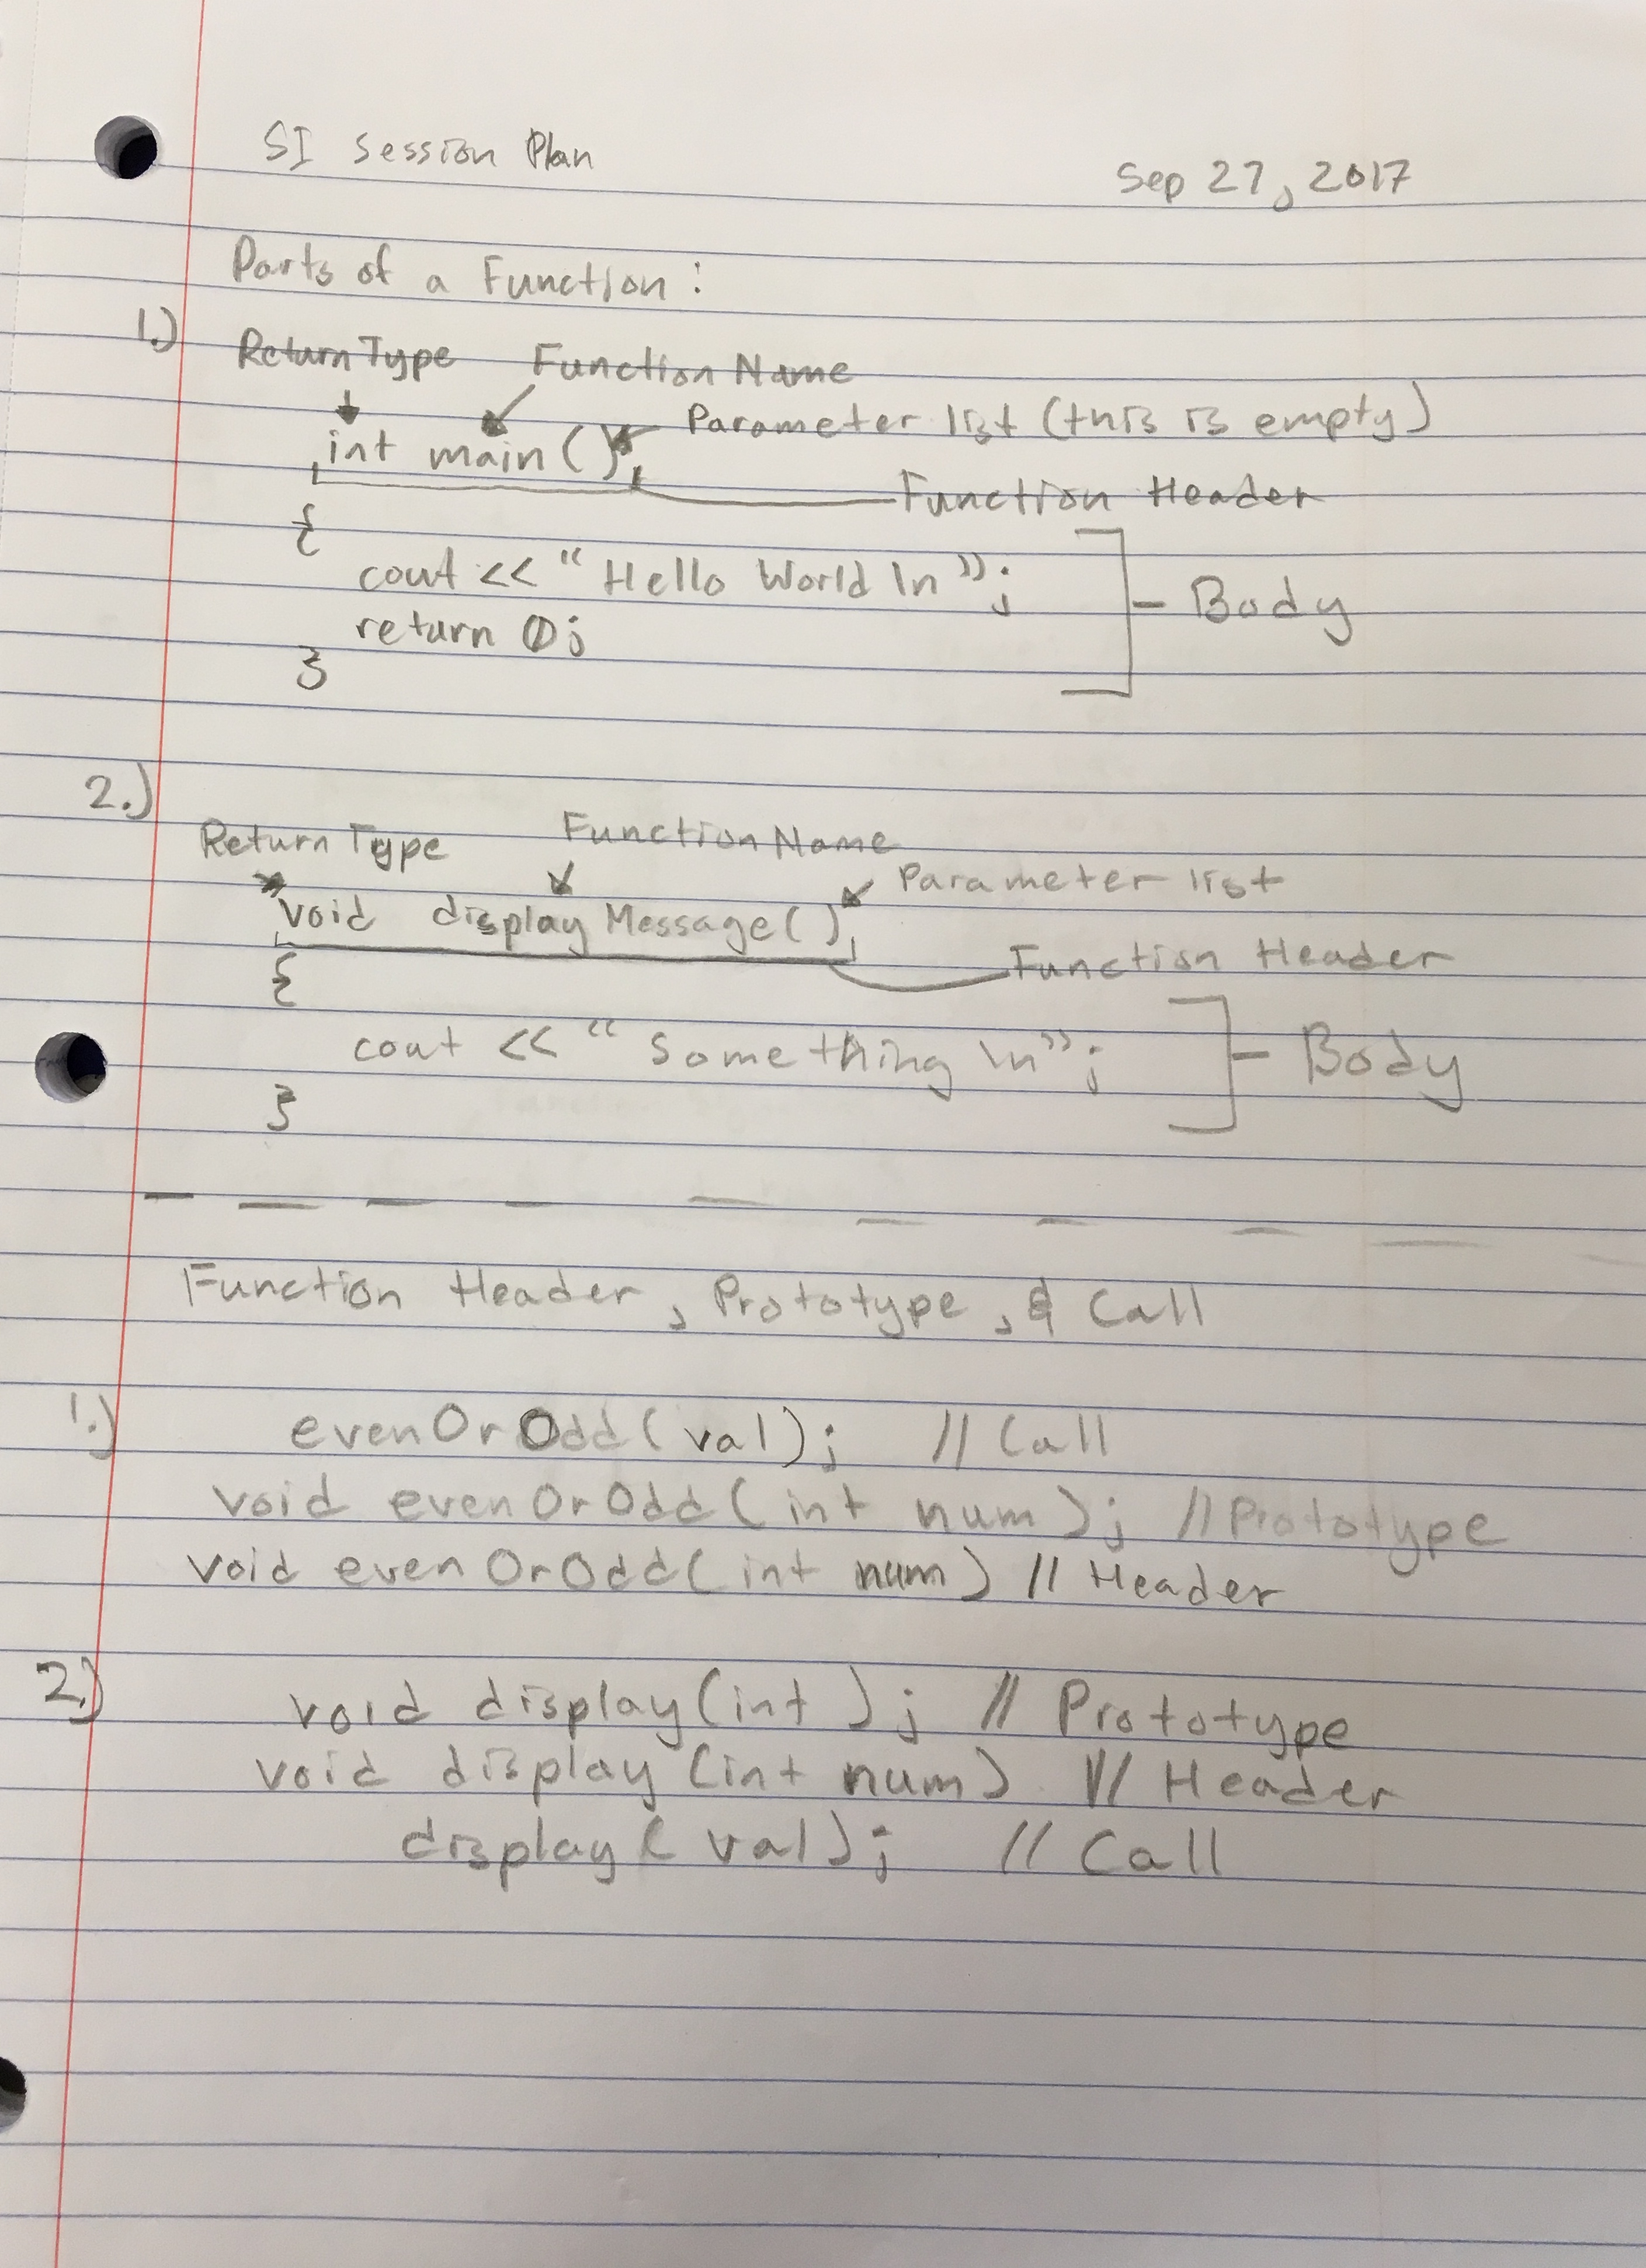 SI Session Plan
Sep 27, 2017
Parts of a Function:
1.)
Return Type Function Name
Parameter list (this is empty)
int main()
Function Header
{
cout << "Hello World \n";
return 0;
Body
}
2.)
Return Type Function Name
Parameter list
void displayMessage()
Function Header
{
cout << "Something \n";
Body
}
Function Header, Prototype, & Call
1.) evenOrOdd(val); // Call
void evenOrOdd(int num); // Prototype
void evenOrOdd(int num) // Header
2.) void display(int ); // Prototype
void display(int num) // Header
display(val); // Call